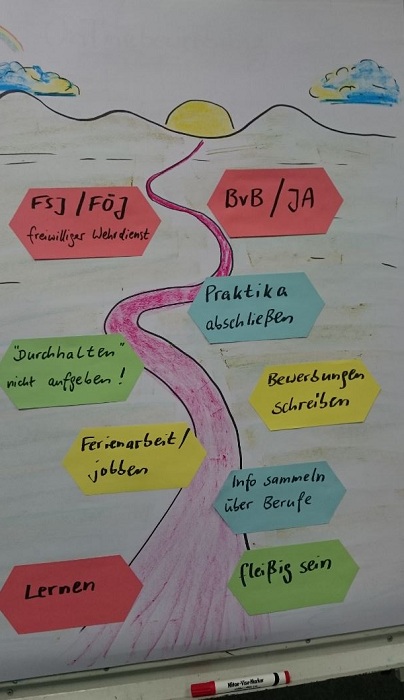 FSJ / FÖJ
freiwilliger Wehrdienst
BvB / JA
Praktika
abschließen
"Durchhalten"
nicht aufgeben!
Bewerbungen
schreiben
Ferienarbeit/
jobben
Info sammeln
über Berufe
Lernen
fleißig sein